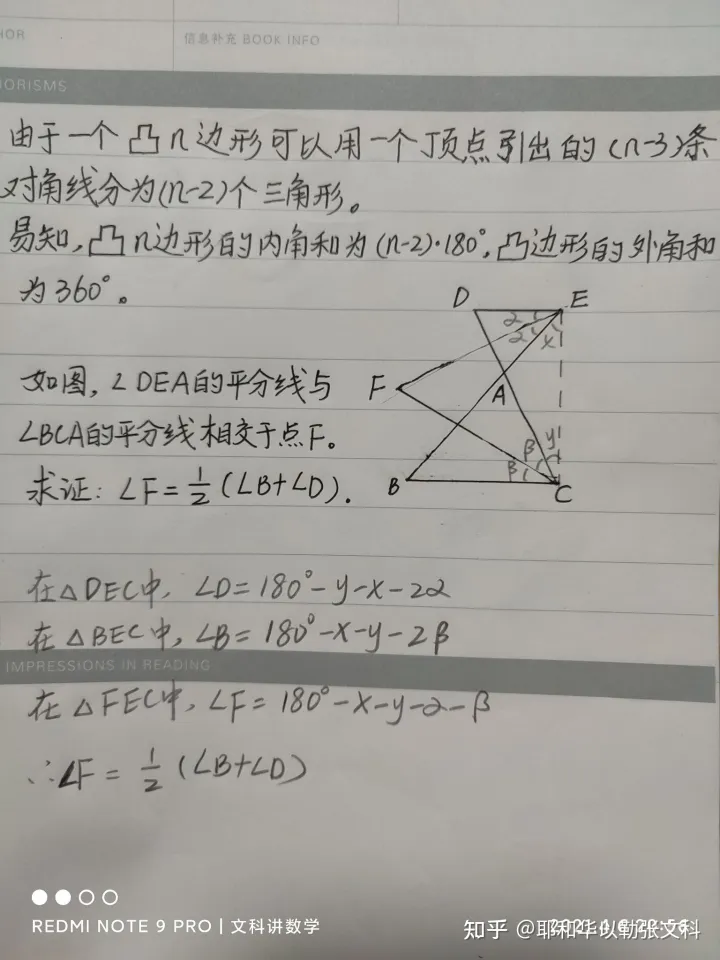 HOR
信息补充 BOOK INFO
ORISMS
由于一个凸n边形可以用一个顶点引出的(n-3)条
对角线分为(n-2)个三角形。
易知,凸n边形的内角和为(n-2)·180°,凸边形的外角和
为360°。
D E
2 1
2 x
如图,∠DEA的平分线与
F
A
∠BCA的平分线相交于点F。
β y
β
求证:∠F=1/2(∠B+∠D).
B C
在△DEC中,∠D=180°-y-x-2α
在△BEC中,∠B=180°-x-y-2β
IMPRESSIONS IN READING
在△FEC中,∠F=180°-x-y-α-β
∴∠F=1/2(∠B+∠D)
REDMI NOTE 9 PRO | 文科讲数学
知乎 @耶和华以勒张文科